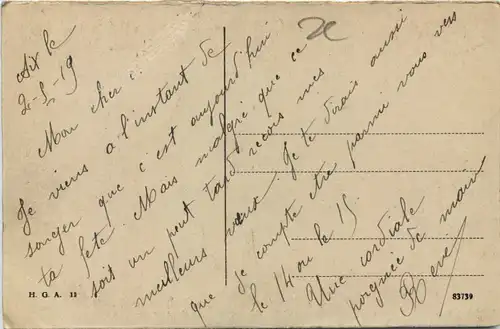 Aix le
2-5-19
Mon cher
Je viens à l'instant de
songer que c'est aujourd'hui
ta fête. Mais malgré que ce
soit un peut tard reçois mes
meilleurs vœux. Je te dirais aussi
que je compte etre parmi vous vers
le 14 ou le 15.
Une cordiale
poignée de main
René
H. G. A. 11
83739